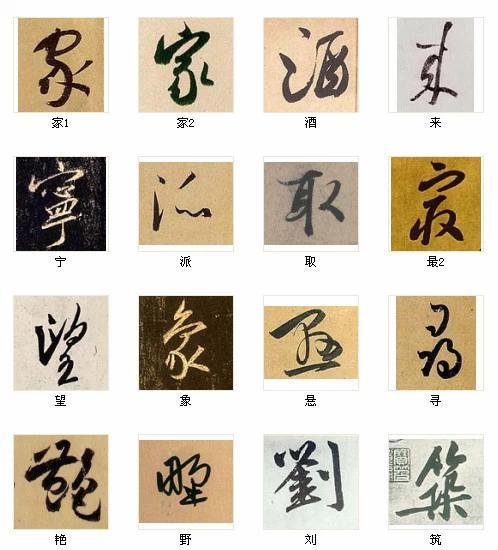 家 家 酒 来
家1 家2 酒 来
寧 派 取 冣
宁 派 取 最2
望 象 悬 寻
望 象 悬 寻
艳 野 劉 築
艳 野 刘 筑